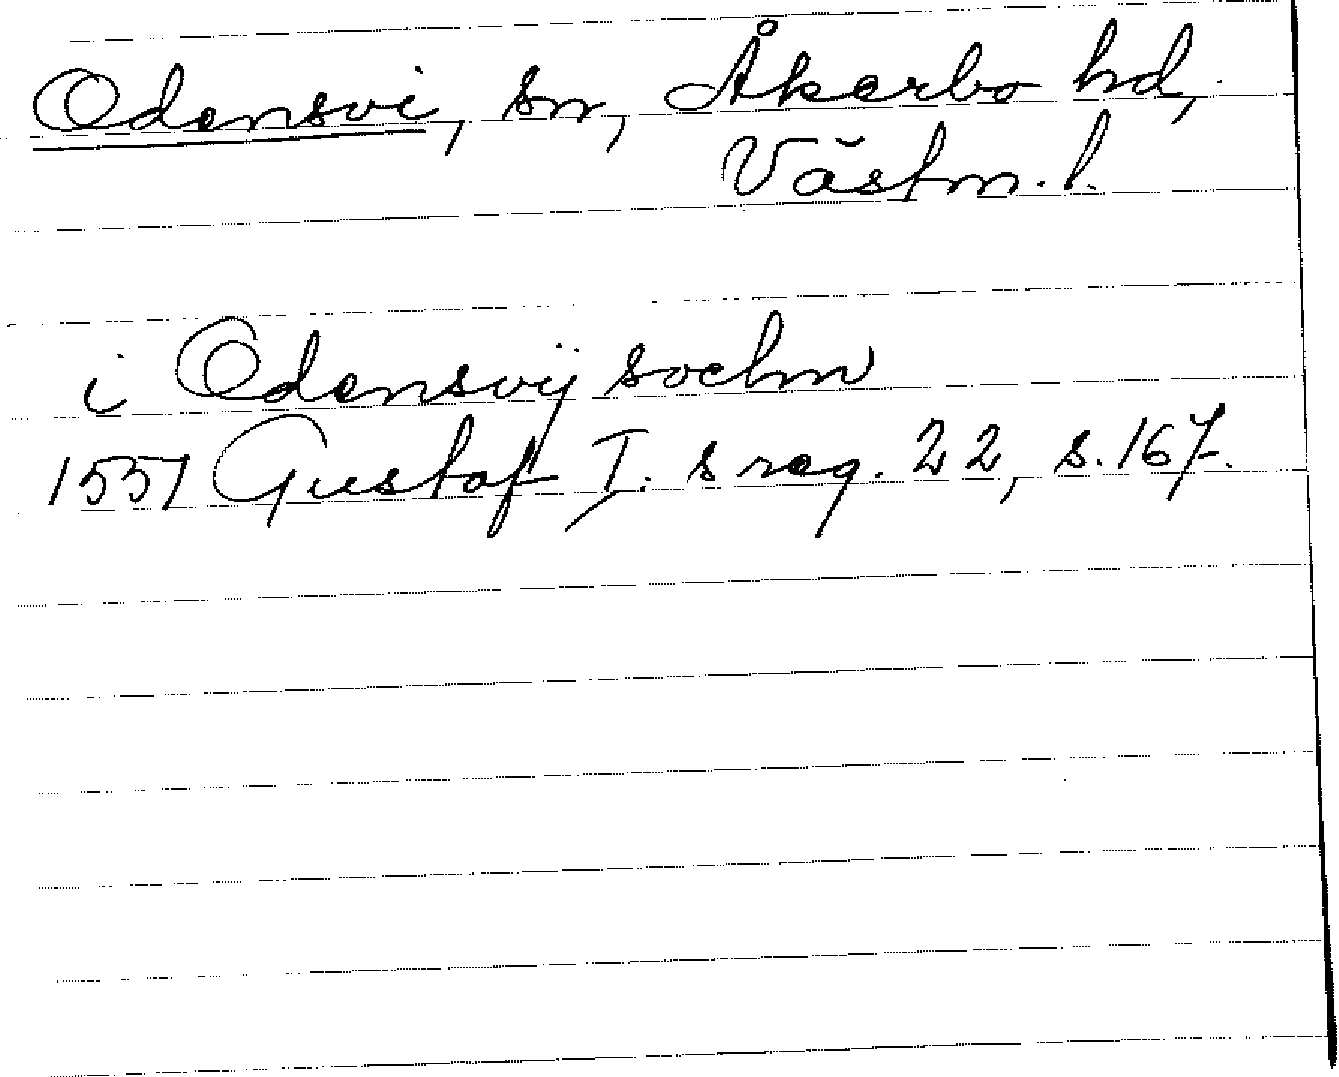 Odensvi, sn, Åkerbo hd,
Västm. l.
i Odensvij sochn
1551 Gustaf I. s reg. 22, s. 167.